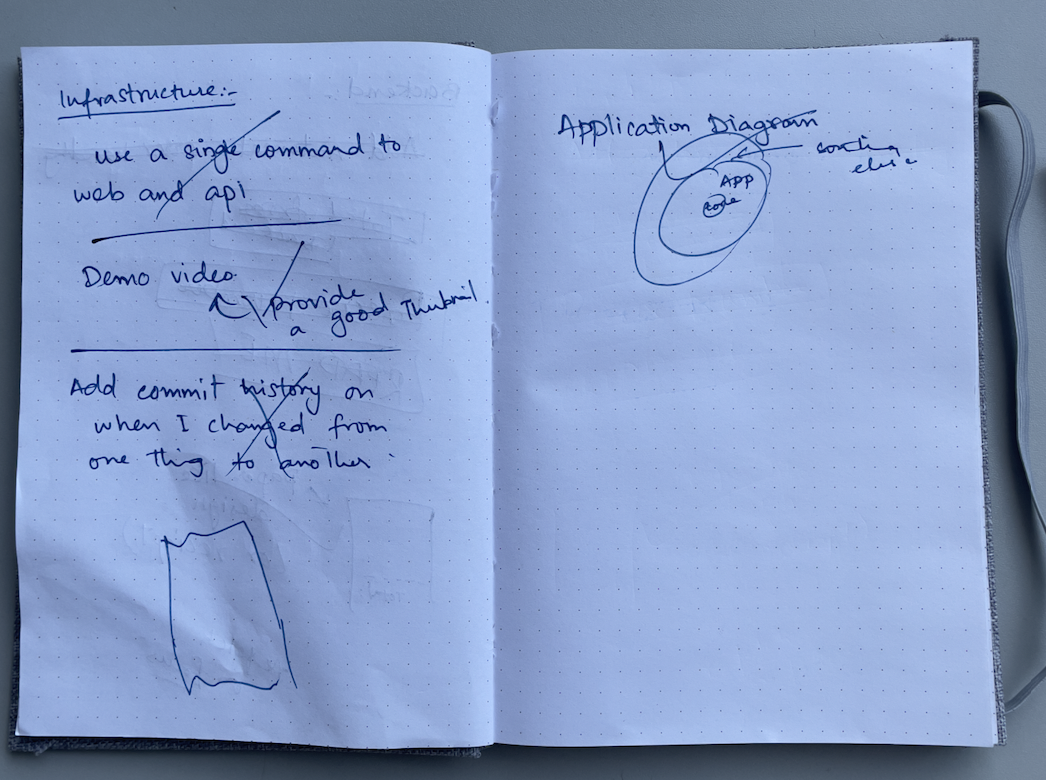 Infrastructure:-
use a single command to
web and api
Demo video.
provide
a good Thubnail.
Add commit history on
when I changed from
one thing to another.
Application Diagram
APP